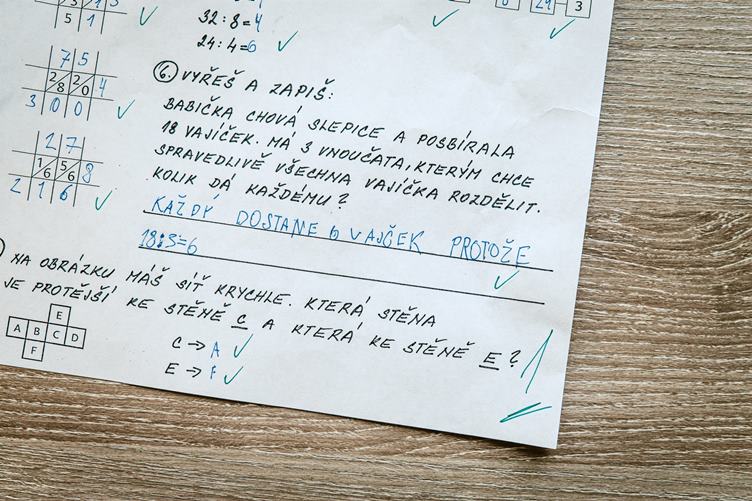 5 1
32 : 8 = 4
24 : 4 = 6
24
3
7 5
2 8 2 0 4
3 0 0
2 7
1 6 5 6 8
2 1 6
6. VYŘEŠ A ZAPIŠ:
BABIČKA CHOVÁ SLEPICE A POSBÍRALA
18 VAJÍČEK. MÁ 3 VNOUČATA, KTERÝM CHCE
SPRAVEDLIVĚ VŠECHNA VAJÍČKA ROZDĚLIT.
KOLIK DÁ KAŽDÉMU?
KAŽDÝ DOSTANE 6 VAJČEK PROTOŽE
18:3=6
NA OBRÁZKU MÁŠ SÍŤ KRYCHLE. KTERÁ STĚNA
JE PROTĚJŠÍ KE STĚNĚ C A KTERÁ KE STĚNĚ E?
E
A B C D
F
C → A
E → F
1